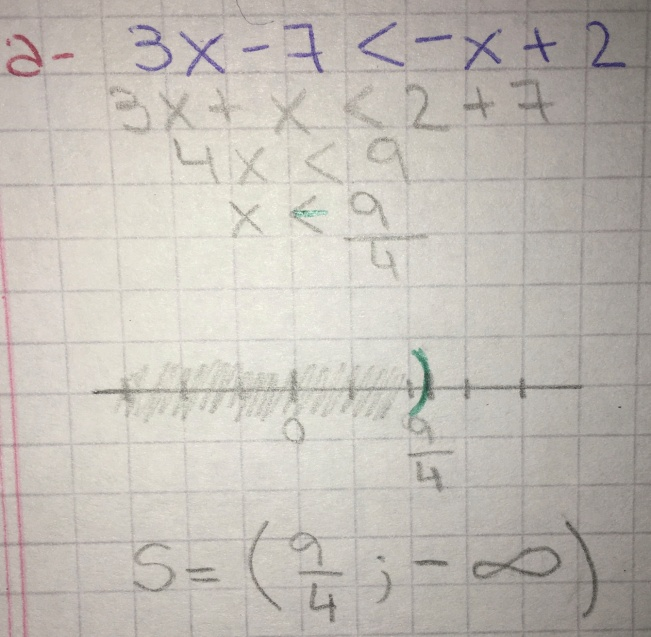 a- 3x - 7 < - x + 2
3x + x < 2 + 7
4x < 9
x < 9/4
0 9/4
S = (9/4 ; - ∞)